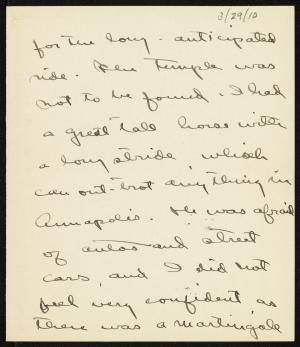 3/29/10
for the long-anticipated
ride. Ben Temple was
not to be found. I had
a great tall horse with
a long stride, which
can out-trot anything in
Annapolis. He was afraid
of autos and street
cars, and I did not
feel very confident as
there was a martingale